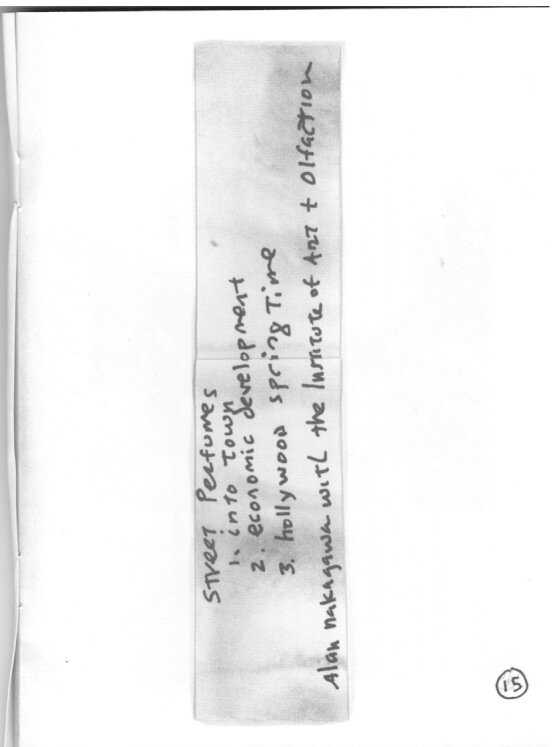 Street Perfumes
1. into town
2. economic development
3. hollywood spring Time
Alan nakagawa with the Institute of Art + Olfaction
15